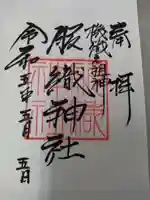 奉拝
機織の祖神
服織神社
令和五年五月
五日